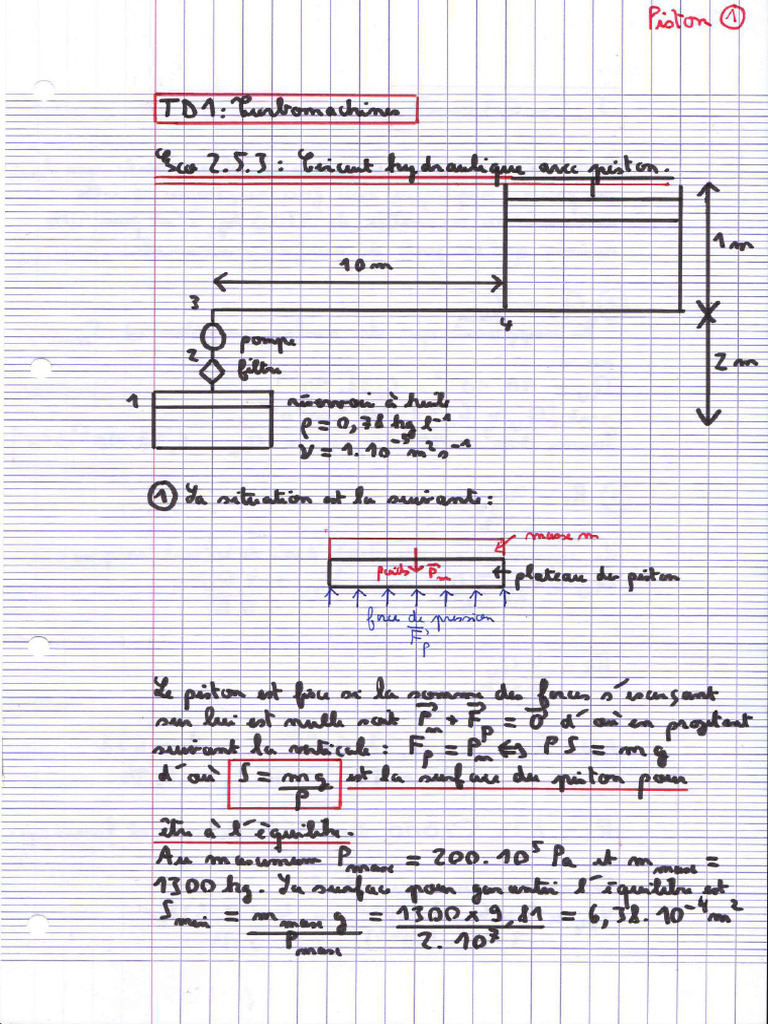 Piston ①
TD1: Turbomachines
Exo 2.5.3 : Circuit hydraulique avec piston.
1 m
10 m
3
4
pompe
2
filtre
2 m
1
réservoir à huile
ρ = 0,78 kg l⁻¹
ν = 1.10⁻⁵ m² s⁻¹
① La situation est la suivante :
masse m
poids P⃗m
plateau du piston
force de pression
F⃗p
Le piston est fixe si la somme des forces s'exerçant
sur lui est nulle soit P⃗m + F⃗p = 0⃗ d'où en projetant
suivant la verticale : Fp = Pm ⇔ P S = m g
d'où S = mg/P est la surface du piston pour
être à l'équilibre.
Au maximum Pmax = 200.10⁵ Pa et mmax =
1300 kg. La surface pour garantir l'équilibre est
Smin = mmax g / Pmax = 1300 × 9,81 / 2.10⁷ = 6,38.10⁻⁴ m²